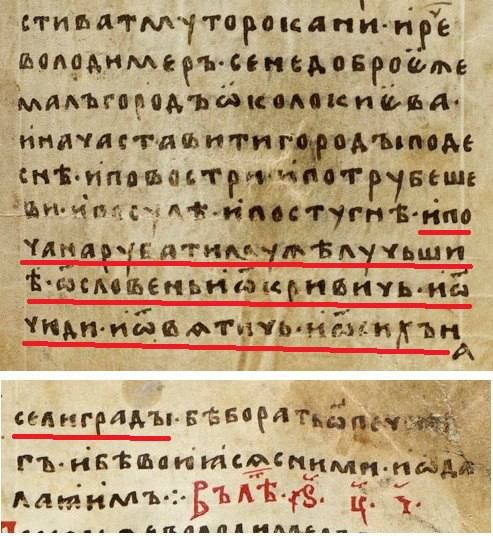 стиватмуторокани·ирⷱ҇е
володимеръ·сенедоброѡ̈же
малъгородъѡ̈колокиѥва·
иначаставитигородъıподе
снѣ·иповостри·ипотрубеше
ви·ипосулѣ·ипостугнѣ·ипо
чанарубатимужѣлучьши
ѣ·ѿсловень·иѿкривичь·иѿ
чюди·иѿвѧтичь·иѿсихъна
селиградъı·бѣборатьѿпечене
гъ·ибѣвоюꙗсѧсними·иѡда
лаꙗимъ·:· Вълѣⷮ҇·҂ѕ҃·ц҃·ч҃·